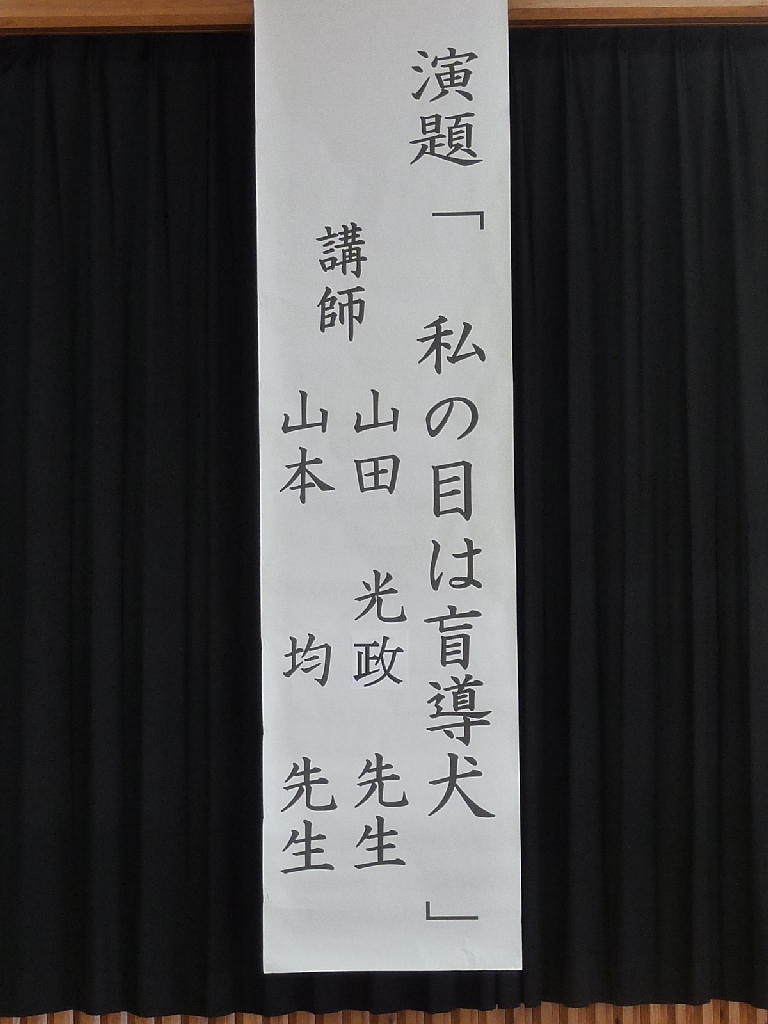 演題「私の目は盲導犬」
講師
山田 光政 先生
山本 均 先生